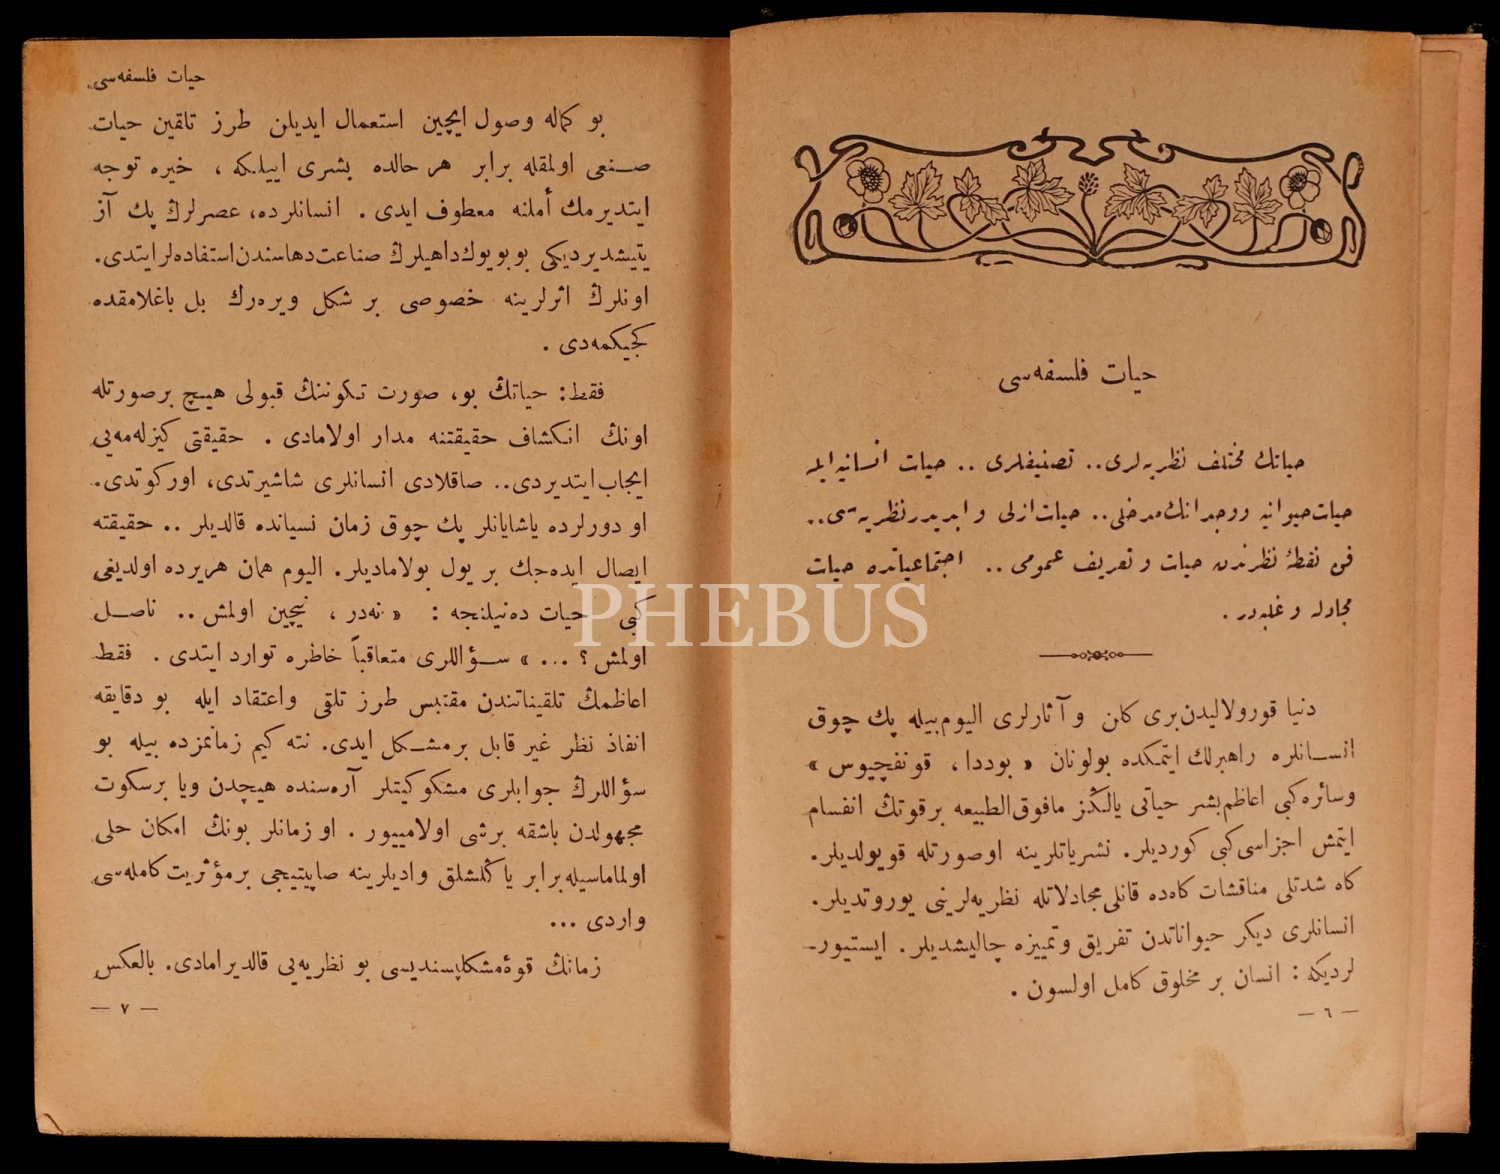 حیات فلسفه‌سی
حیاتك مختلف نظریه‌لری.. تصنیفلری .. حیات انسانیه ایله
حیات حیوانیه ووجدانك مدخلی.. حیات ازلی و ابدیدر نظریه‌سی..
فن نقطهٔ نظرندن حیات و تعریف عمومی .. اجتماعیاتده حیات
مجادله و غلبه‌در .
دنیا قورولالیدن‌بری کلن و آثارلری الیوم‌بیله پك چوق
انسـانلره راهبرلك ایتمکده بولونان « بوددا ، قونفچیوس »
وسائره‌کبی اعاظم‌بشر حیاتی یالڭز مافوق‌الطبیعه برقوتڭ انقسام
ایتمش اجزاسی‌کبی کوردیلر. نشریاتلرینه اوصورتله قویولدیلر.
کاه شدتلی مناقشات کاه‌ده قانلی‌مجادلاتله نظریه‌لرینی یوروتدیلر.
انسانلری دیکر حیواناتدن تفریق وتمییزه چالیشدیلر. ایستیور-
لردیکه : انسان بر مخلوق کامل اولسون .
— ٦ —
حیات فلسفه‌سی
بو کماله وصول ایچین استعمال ایدیلن طرز تلقین حیات
صـنعی اولمقله برابر هر حالده بشری اییلکه ، خیره توجه
ایتدیرمك أملنه معطوف ایدی . انسانلرده، عصرلرڭ پك آز
یتیشدیردیکی بوبویوك‌داهیلرڭ صناعت‌دهاسندن‌استفاده‌لرایتدی.
اونلرڭ اثرلرینه خصوصی بر شکل ویره‌رك بل باغلامقده
کجیکمه‌دی .
فقط: حیاتڭ بو، صورت تکوننڭ قبولی هیـچ برصورتله
اونڭ انکشاف حقیقتنه مدار اولامادی . حقیقتی کیزله‌مه‌یی
ایجاب‌ایتدیردی.. صاقلادی انسانلری شاشیرتدی، اورکوتدی.
او دورلرده یاشایانلر پك چوق زمان نسیانده قالدیلر .. حقیقته
ایصال ایده‌جك بر یول بولامادیلر. الیوم همان هریرده اولدیغی
کبی حیات ده‌نیلنجه : « نه‌در ، نیچین اولمش .. ناصـل
اولمش ؟ ... » سـؤاللری متعاقباً خاطره توارد ایتدی . فقط
اعاظمڭ تلقیناتندن مقتبس طرز تلقی واعتقاد ایله بو دقایقه
انفاذ نظر غیر قابل برمشـکل ایدی. نته کیم زمانمزده بیله بو
سؤاللرڭ جوابلری مشکوکیتلر آره‌سنده هیچدن ویا برسکوت
مجهولدن باشقه برشی اولامییور . او زمانلر بونڭ امکان حلی
اولماماسیله‌برابر یاڭلشلق وادیلرینه صاپیتیجی برمؤثریت کامله‌سی
واردی ...
زمانڭ قوهٔ‌مشکلپسندیسی بو نظریه‌یی قالدیرامادی. بالعکس
— ٧ —
PHEBUS